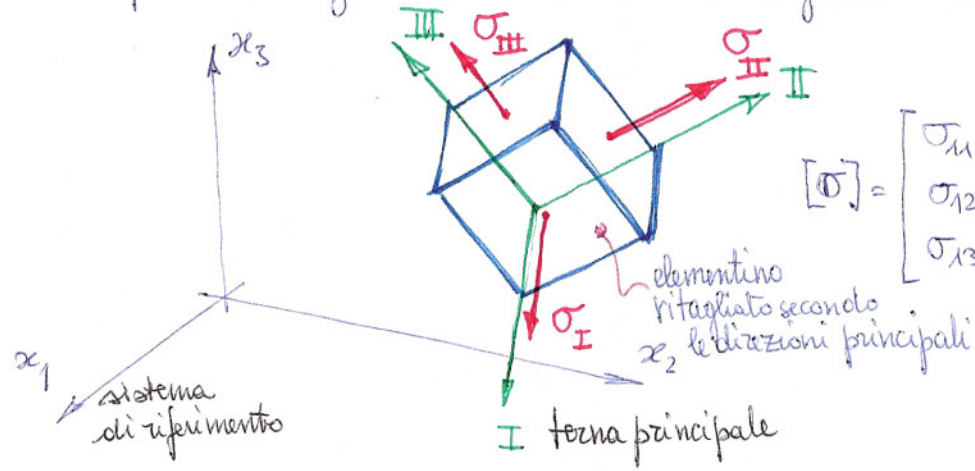 III
σ_III
σ_II
II
x_3
[σ] = [ σ_11
σ_12
σ_13
elementino
ritagliato secondo
le direzioni principali
σ_I
x_1
x_2
sistema
di riferimento
I terna principale